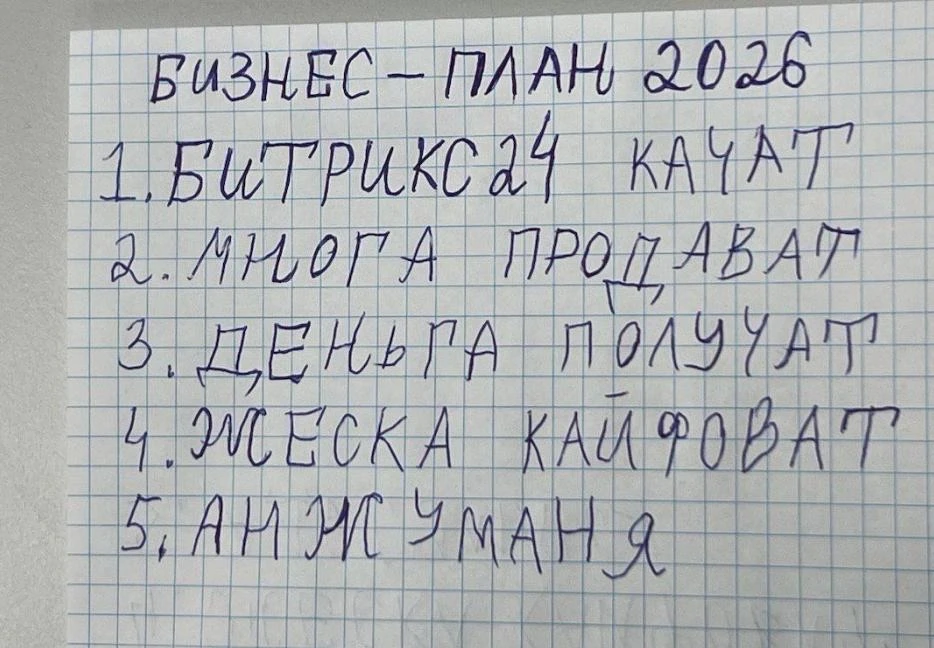 БИЗНЕС - ПЛАН 2026
1. БИТРИКС24 КАЧАТ
2. МНОГА ПРОДАВАТ
3. ДЕНЬГА ПОЛУЧАТ
4. ЖЕСКА КАЙФОВАТ
5. АНЖУМАНЯ